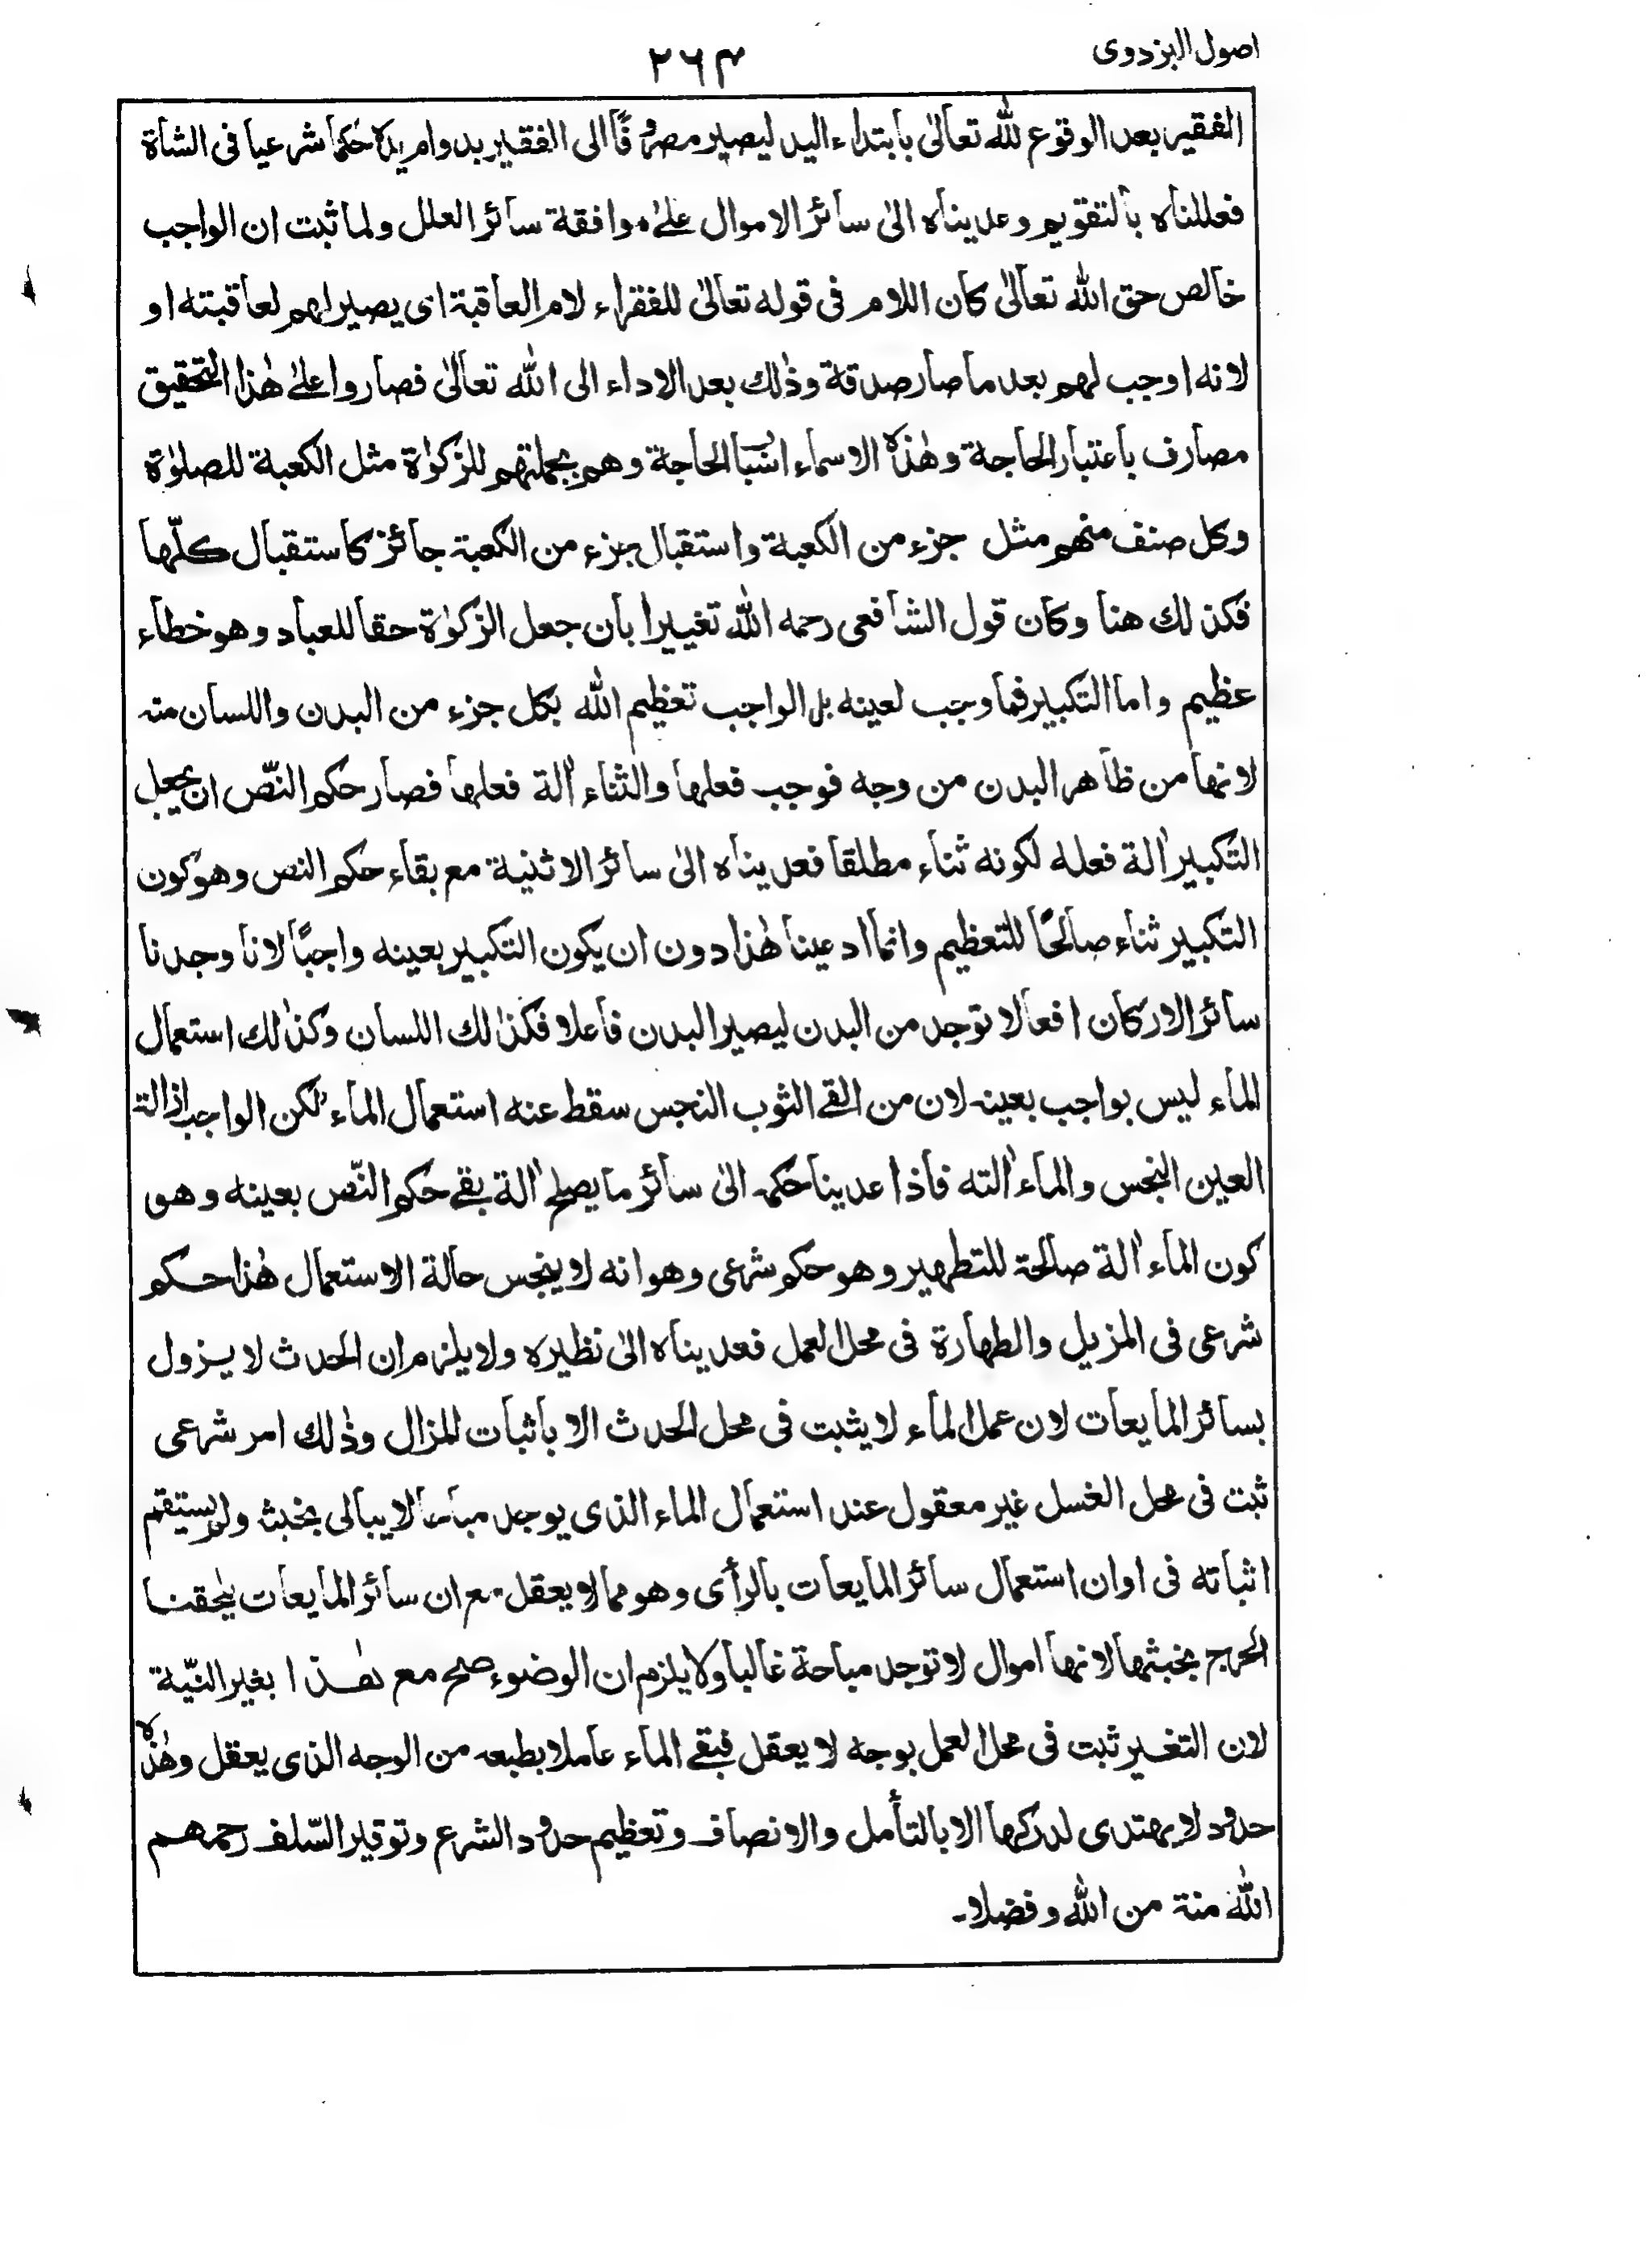 اصول البزدوى
٢٦٣
الفقير بعد الوقوع لله تعالىٰ بابتداء اليد ليصير مصروفًا الى الفقير بدوام يده حكما شرعيا فى الشاة
فعللناه بالتقويم وعديناه الىٰ سائر الاموال علىٰ موافقة سائر العلل ولما ثبت ان الواجب
خالص حق الله تعالىٰ كان اللام فى قوله تعالىٰ للفقراء لام العاقبة اى يصير لهم لعاقبته او
لانه اوجب لهم بعد ما صار صدقة وذٰلك بعد الاداء الى الله تعالىٰ فصاروا علىٰ هٰذا التحقيق
مصارف باعتبار الحاجة وهٰذه الاسماء اسباب الحاجة وهم بجملتهم للزكوٰة مثل الكعبة للصلوٰة
وكل صنف منهم مثل جزء من الكعبة واستقبال جزء من الكعبة جائز كاستقبال كلّها
فكذلك هنا وكان قول الشافعى رحمه الله تغييرا بان جعل الزكوٰة حقا للعباد وهو خطاء
عظيم واما التكبير فما وجب لعينه بل الواجب تعظيم الله بكل جزء من البدن واللسان منه
لانها من ظاهر البدن من وجه فوجب فعلها والثناء اٰلة فعلها فصار حكم النّص ان يجعل
التكبير اٰلة فعله لكونه ثناء مطلقا فعديناه الىٰ سائر الاثنية مع بقاء حكم النص وهو كون
التكبير ثناء صالحًا للتعظيم وانما ادعينا هٰذا دون ان يكون التكبير بعينه واجبًا لانا وجدنا
سائر الاركان افعالا توجد من البدن ليصير البدن فاعلا فكذٰلك اللسان وكذٰلك استعمال
الماء ليس بواجب بعينه لان من القى الثوب النجس سقط عنه استعمال الماء لكن الواجب ازالة
العين النجس والماء اٰلته فاذا عدينا حكمه الىٰ سائر ما يصلح اٰلة بقى حكم النّص بعينه وهو
كون الماء اٰلة صالحة للتطهير وهو حكم شرعى وهو انه لا ينجس حالة الاستعمال هٰذا حكم
شرعى فى المزيل والطهارة فى محل العمل فعديناه الىٰ نظيره ولا يلزم ان الحدث لا يزول
بسائر المايعات لان عمل الماء لا يثبت فى محل الحدث الا باثبات المزال وذٰلك امر شرعى
ثبت فى محل الغسل غير معقول عند استعمال الماء الذى يوجد مباحا لا يبالى بخبثه ولم يستقم
اثباته فى اوان استعمال سائر المايعات بالرأى وهو مما لا يعقل مع ان سائر المايعات يلحقنا
الحرج بخبثها لانها اموال لا توجد مباحة غالبا ولا يلزم ان الوضوء صح مع هٰذا بغير النيّة
لان التغير ثبت فى محل العمل بوجه لا يعقل فبقى الماء عاملا بطبعه من الوجه الذى يعقل وهٰذه
حدود لا يهتدى لدركها الا بالتأمل والانصاف وتعظيم حدود الشرع وتوقير السّلف رحمهم
الله منة من الله وفضلا۔